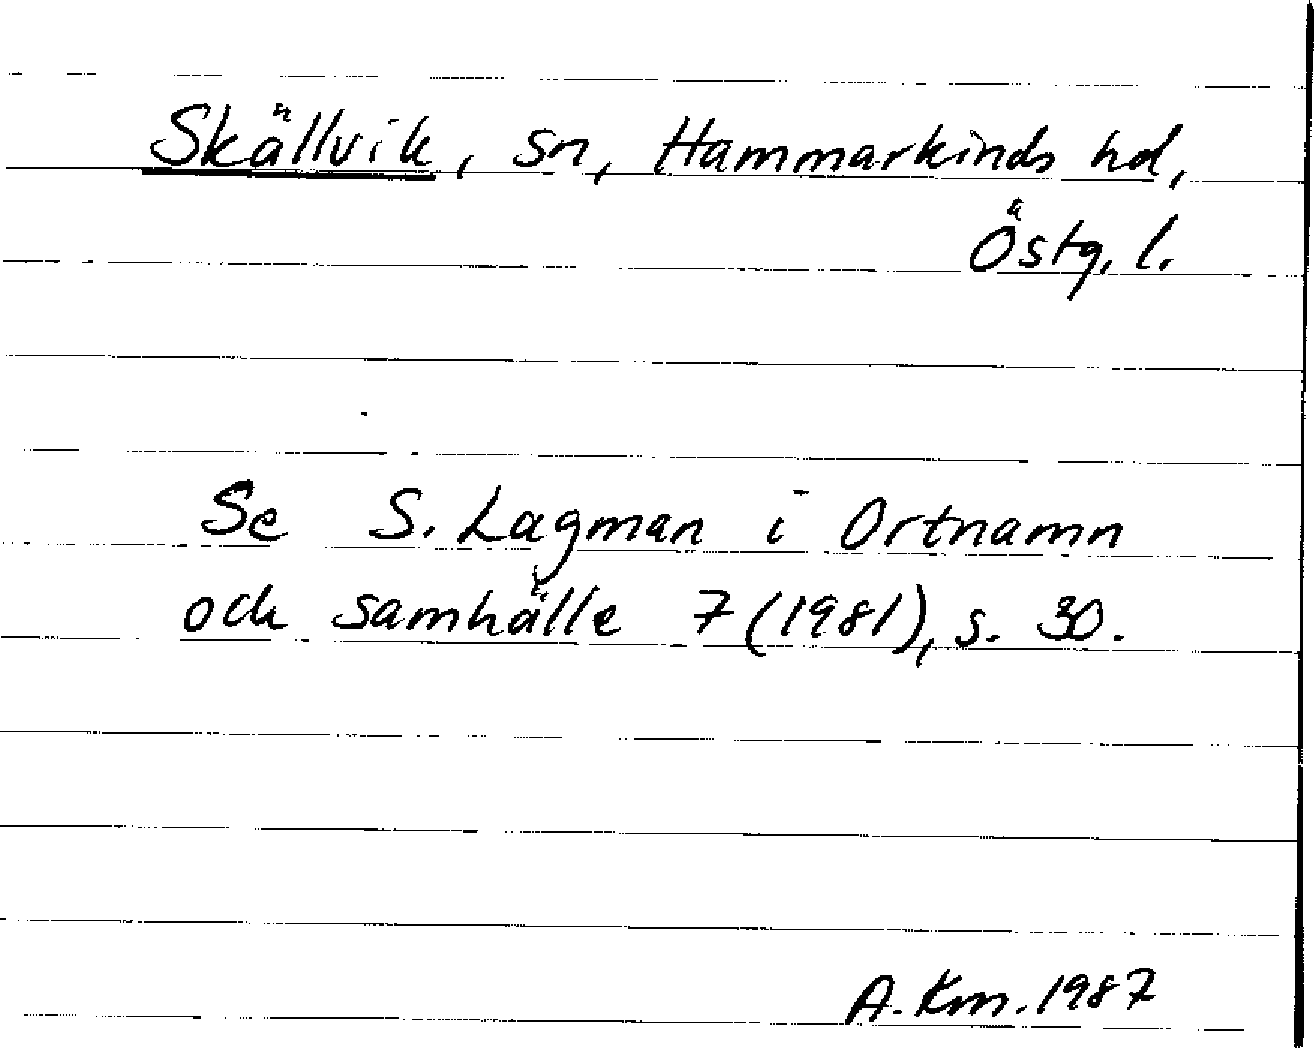 Skällvik, sn, Hammarkinds hd,
Östg. l.
Se S. Lagman i Ortnamn
och samhälle 7 (1981), s. 30.
A. Km. 1987